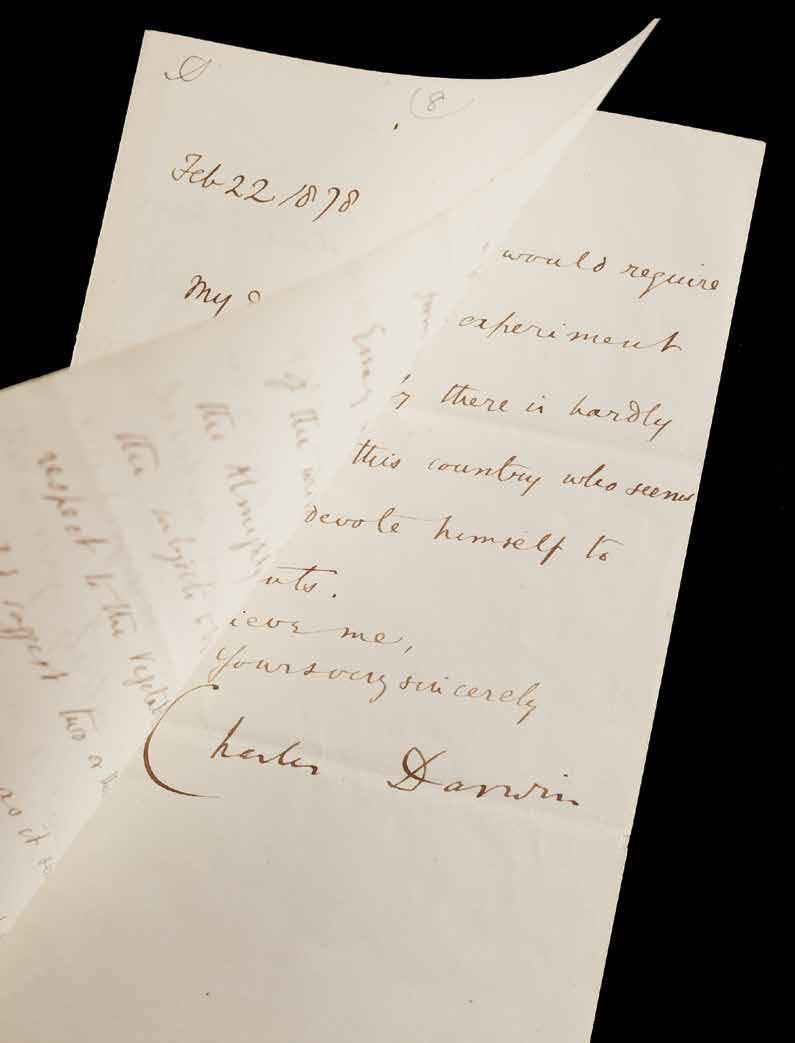 (8
Feb 22 1878
My
would require
experiment
there is hardly
this country who seems
devote himself to
nts.
ieve me,
Yours very sincerely
Charles Darwin
of the
the
the subject
respect to the
suggest two or
as it